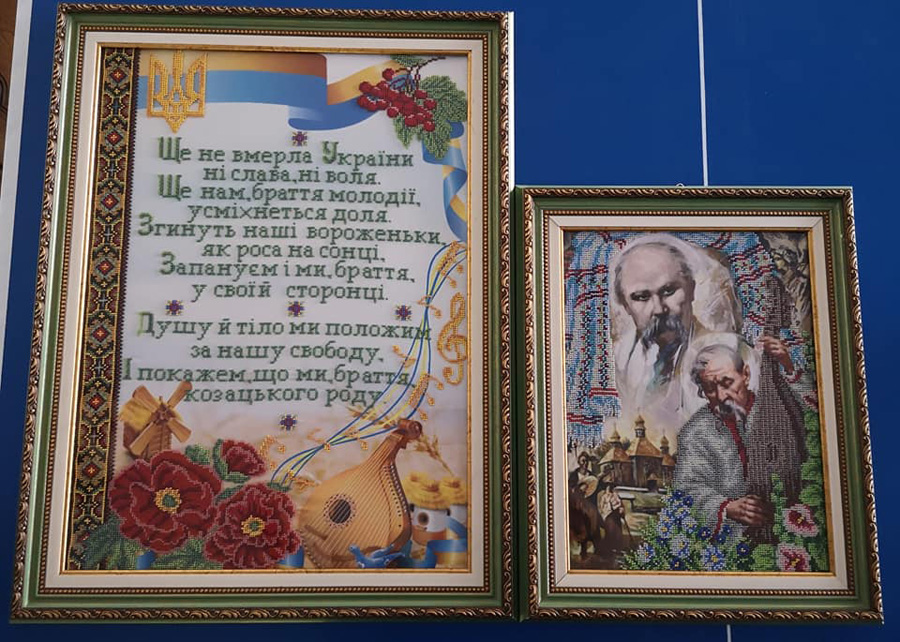 Ще не вмерла України
ні слава,ні воля.
Ще нам,браття молодії,
усміхнеться доля.
Згинуть наші вороженьки,
як роса на сонці,
Запануєм і ми,браття,
у своїй сторонці.
Душу й тіло ми положим
за нашу свободу,
І покажем,що ми,браття,
козацького роду